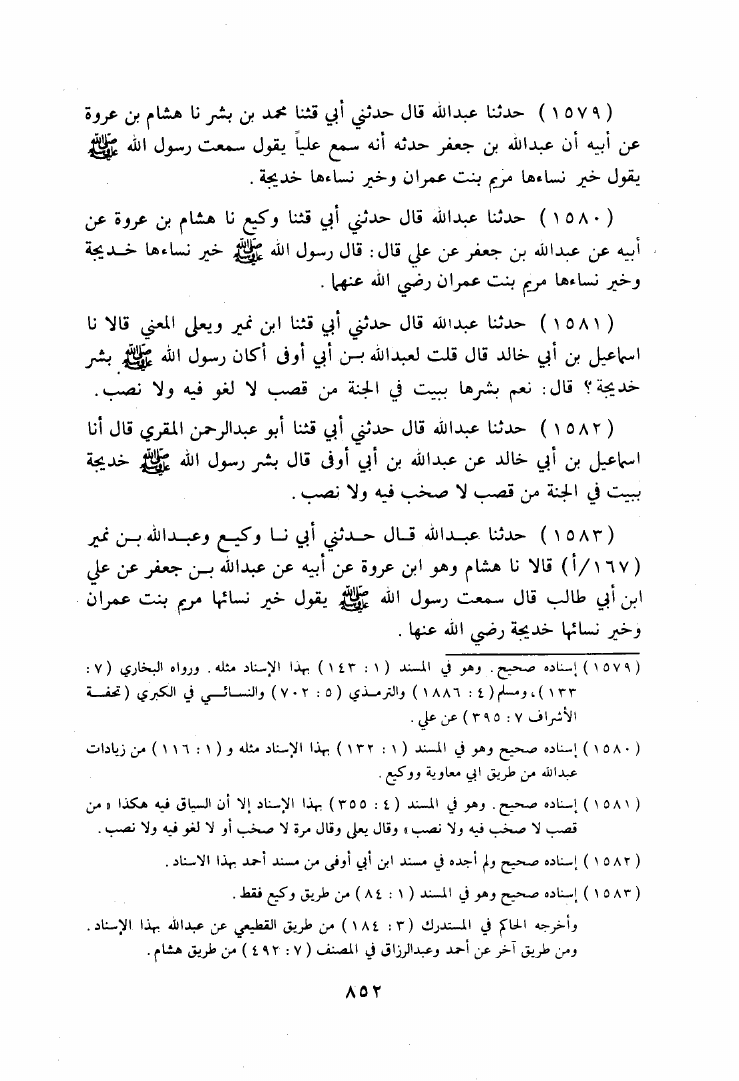 (١٥٧٩) حدثنا عبدالله قال حدثني أبي قثنا محمد بن بشر نا هشام بن عروة
عن أبيه أن عبدالله بن جعفر حدثه أنه سمع علياً يقول سمعت رسول الله ﷺ
يقول خير نساءها مريم بنت عمران وخير نساءها خديجة .
(١٥٨٠) حدثنا عبدالله قال حدثني أبي قثنا وكيع نا هشام بن عروة عن
أبيه عن عبدالله بن جعفر عن علي قال : قال رسول الله ﷺ خير نساءها خديجة
وخير نساءها مريم بنت عمران رضي الله عنهما .
(١٥٨١) حدثنا عبدالله قال حدثني أبي قثنا ابن نمير ويعلى المعني قالا نا
اسماعيل بن أبي خالد قال قلت لعبدالله بن أبي أوفى أكان رسول الله ﷺ بشر
خديجة ؟ قال : نعم بشرها ببيت في الجنة من قصب لا لغو فيه ولا نصب .
(١٥٨٢) حدثنا عبدالله قال حدثني أبي قثنا أبو عبدالرحمن المقري قال أنا
اسماعيل بن أبي خالد عن عبدالله بن أبي أوفى قال بشر رسول الله ﷺ خديجة
ببيت في الجنة من قصب لا صخب فيه ولا نصب .
(١٥٨٣) حدثنا عبدالله قال حدثني أبي نا وكيع وعبدالله بن نمير
(١٦٧/أ) قالا نا هشام وهو ابن عروة عن أبيه عن عبدالله بن جعفر عن علي
ابن أبي طالب قال سمعت رسول الله ﷺ يقول خير نسائها مريم بنت عمران
وخير نسائها خديجة رضي الله عنها .
(١٥٧٩) إسناده صحيح . وهو في المسند (١ : ١٤٣) بهذا الإسناد مثله . ورواه البخاري (٧ :
١٣٣) ، ومسلم (٤ : ١٨٨٦) والترمذي (٥ : ٧٠٢) والنسائي في الكبرى (تحفة
الأشراف ٧ : ٣٩٥) عن علي .
(١٥٨٠) إسناده صحيح وهو في المسند (١ : ١٣٢) بهذا الإسناد مثله و (١ : ١١٦) من زيادات
عبدالله من طريق ابي معاوية ووكيع .
(١٥٨١) إسناده صحيح . وهو في المسند (٤ : ٣٥٥) بهذا الإسناد إلا أن السياق فيه هكذا « من
قصب لا صخب فيه ولا نصب » وقال يعلى وقال مرة لا صخب أو لا لغو فيه ولا نصب .
(١٥٨٢) إسناده صحيح ولم أجده في مسند ابن أبي أوفى من مسند أحمد بهذا الاسناد .
(١٥٨٣) إسناده صحيح وهو في المسند (١ : ٨٤) من طريق وكيع فقط .
وأخرجه الحاكم في المستدرك (٣ : ١٨٤) من طريق القطيعي عن عبدالله بهذا الإسناد .
ومن طريق آخر عن أحمد وعبدالرزاق في المصنف (٧ : ٤٩٢) من طريق هشام .
٨٥٢